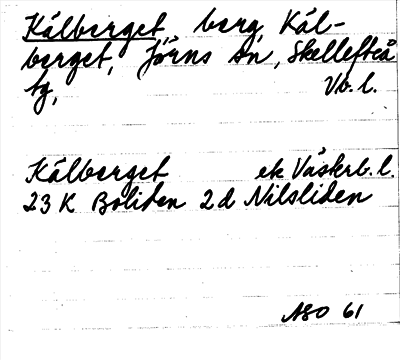 Kålberget, berg, Kål-
berget, Jörns sn, Skellefteå
tg, Vb. l.
Kålberget ek Västerb. l.
23 K Boliden 2 d Nilsliden
ASO 61